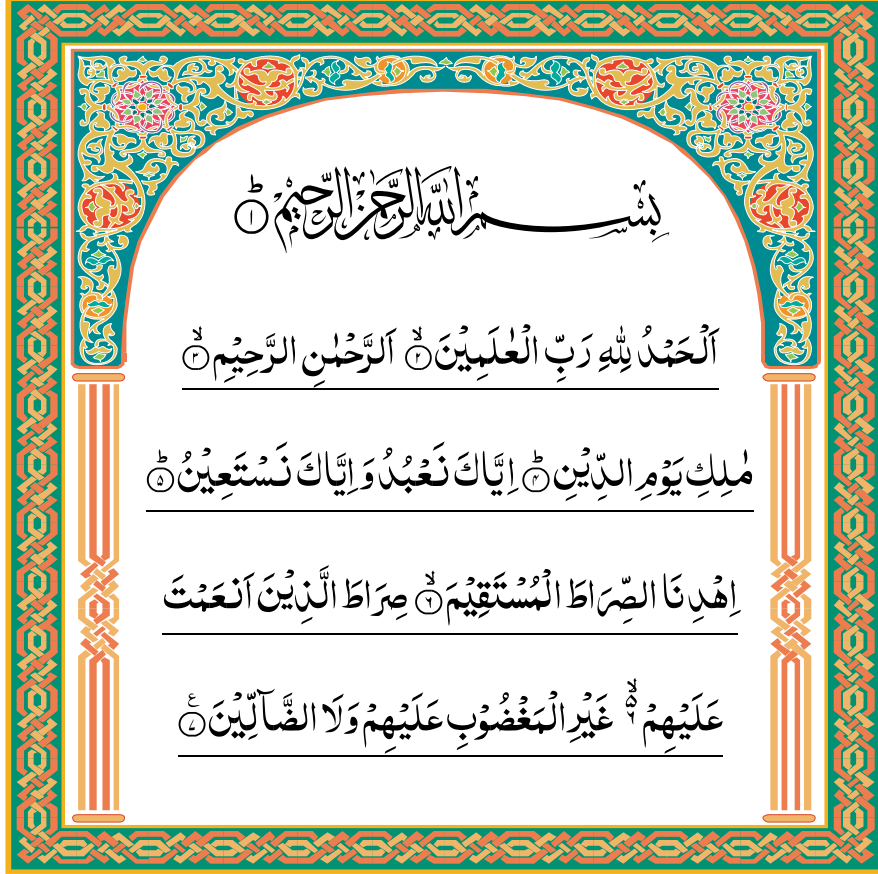 بِسْمِ اللّٰهِ الرَّحْمٰنِ الرَّحِيْمِ ۝۱ؕ
اَلْحَمْدُ لِلّٰهِ رَبِّ الْعٰلَمِيْنَ ۝۲ۙ اَلرَّحْمٰنِ الرَّحِيْمِ ۝۳ۙ
مٰلِكِ يَوْمِ الدِّيْنِ ۝۴ؕ اِيَّاكَ نَعْبُدُ وَ اِيَّاكَ نَسْتَعِيْنُ ۝۵ؕ
اِهْدِنَا الصِّرَاطَ الْمُسْتَقِيْمَ ۝۶ۙ صِرَاطَ الَّذِيْنَ اَنْعَمْتَ
عَلَيْهِمْ ۝۶ۙ غَيْرِ الْمَغْضُوْبِ عَلَيْهِمْ وَلَا الضَّآلِّيْنَ ۝۷ع